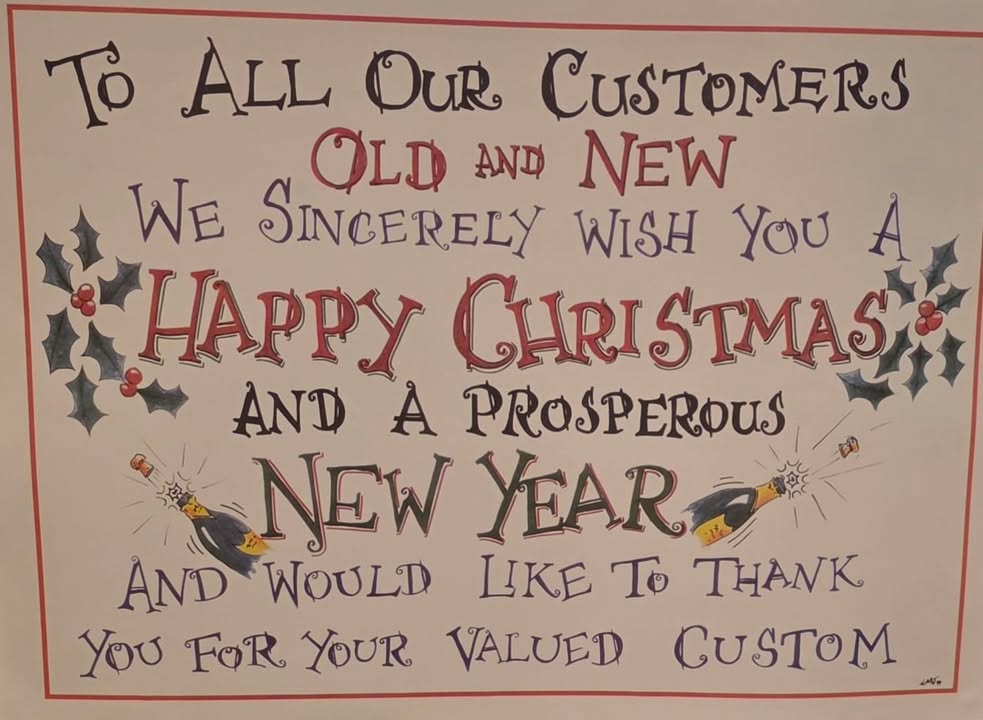 To All Our Customers
Old and New
We Sincerely Wish You A
Happy Christmas
and a Prosperous
New Year
And Would Like To Thank
You For Your Valued Custom